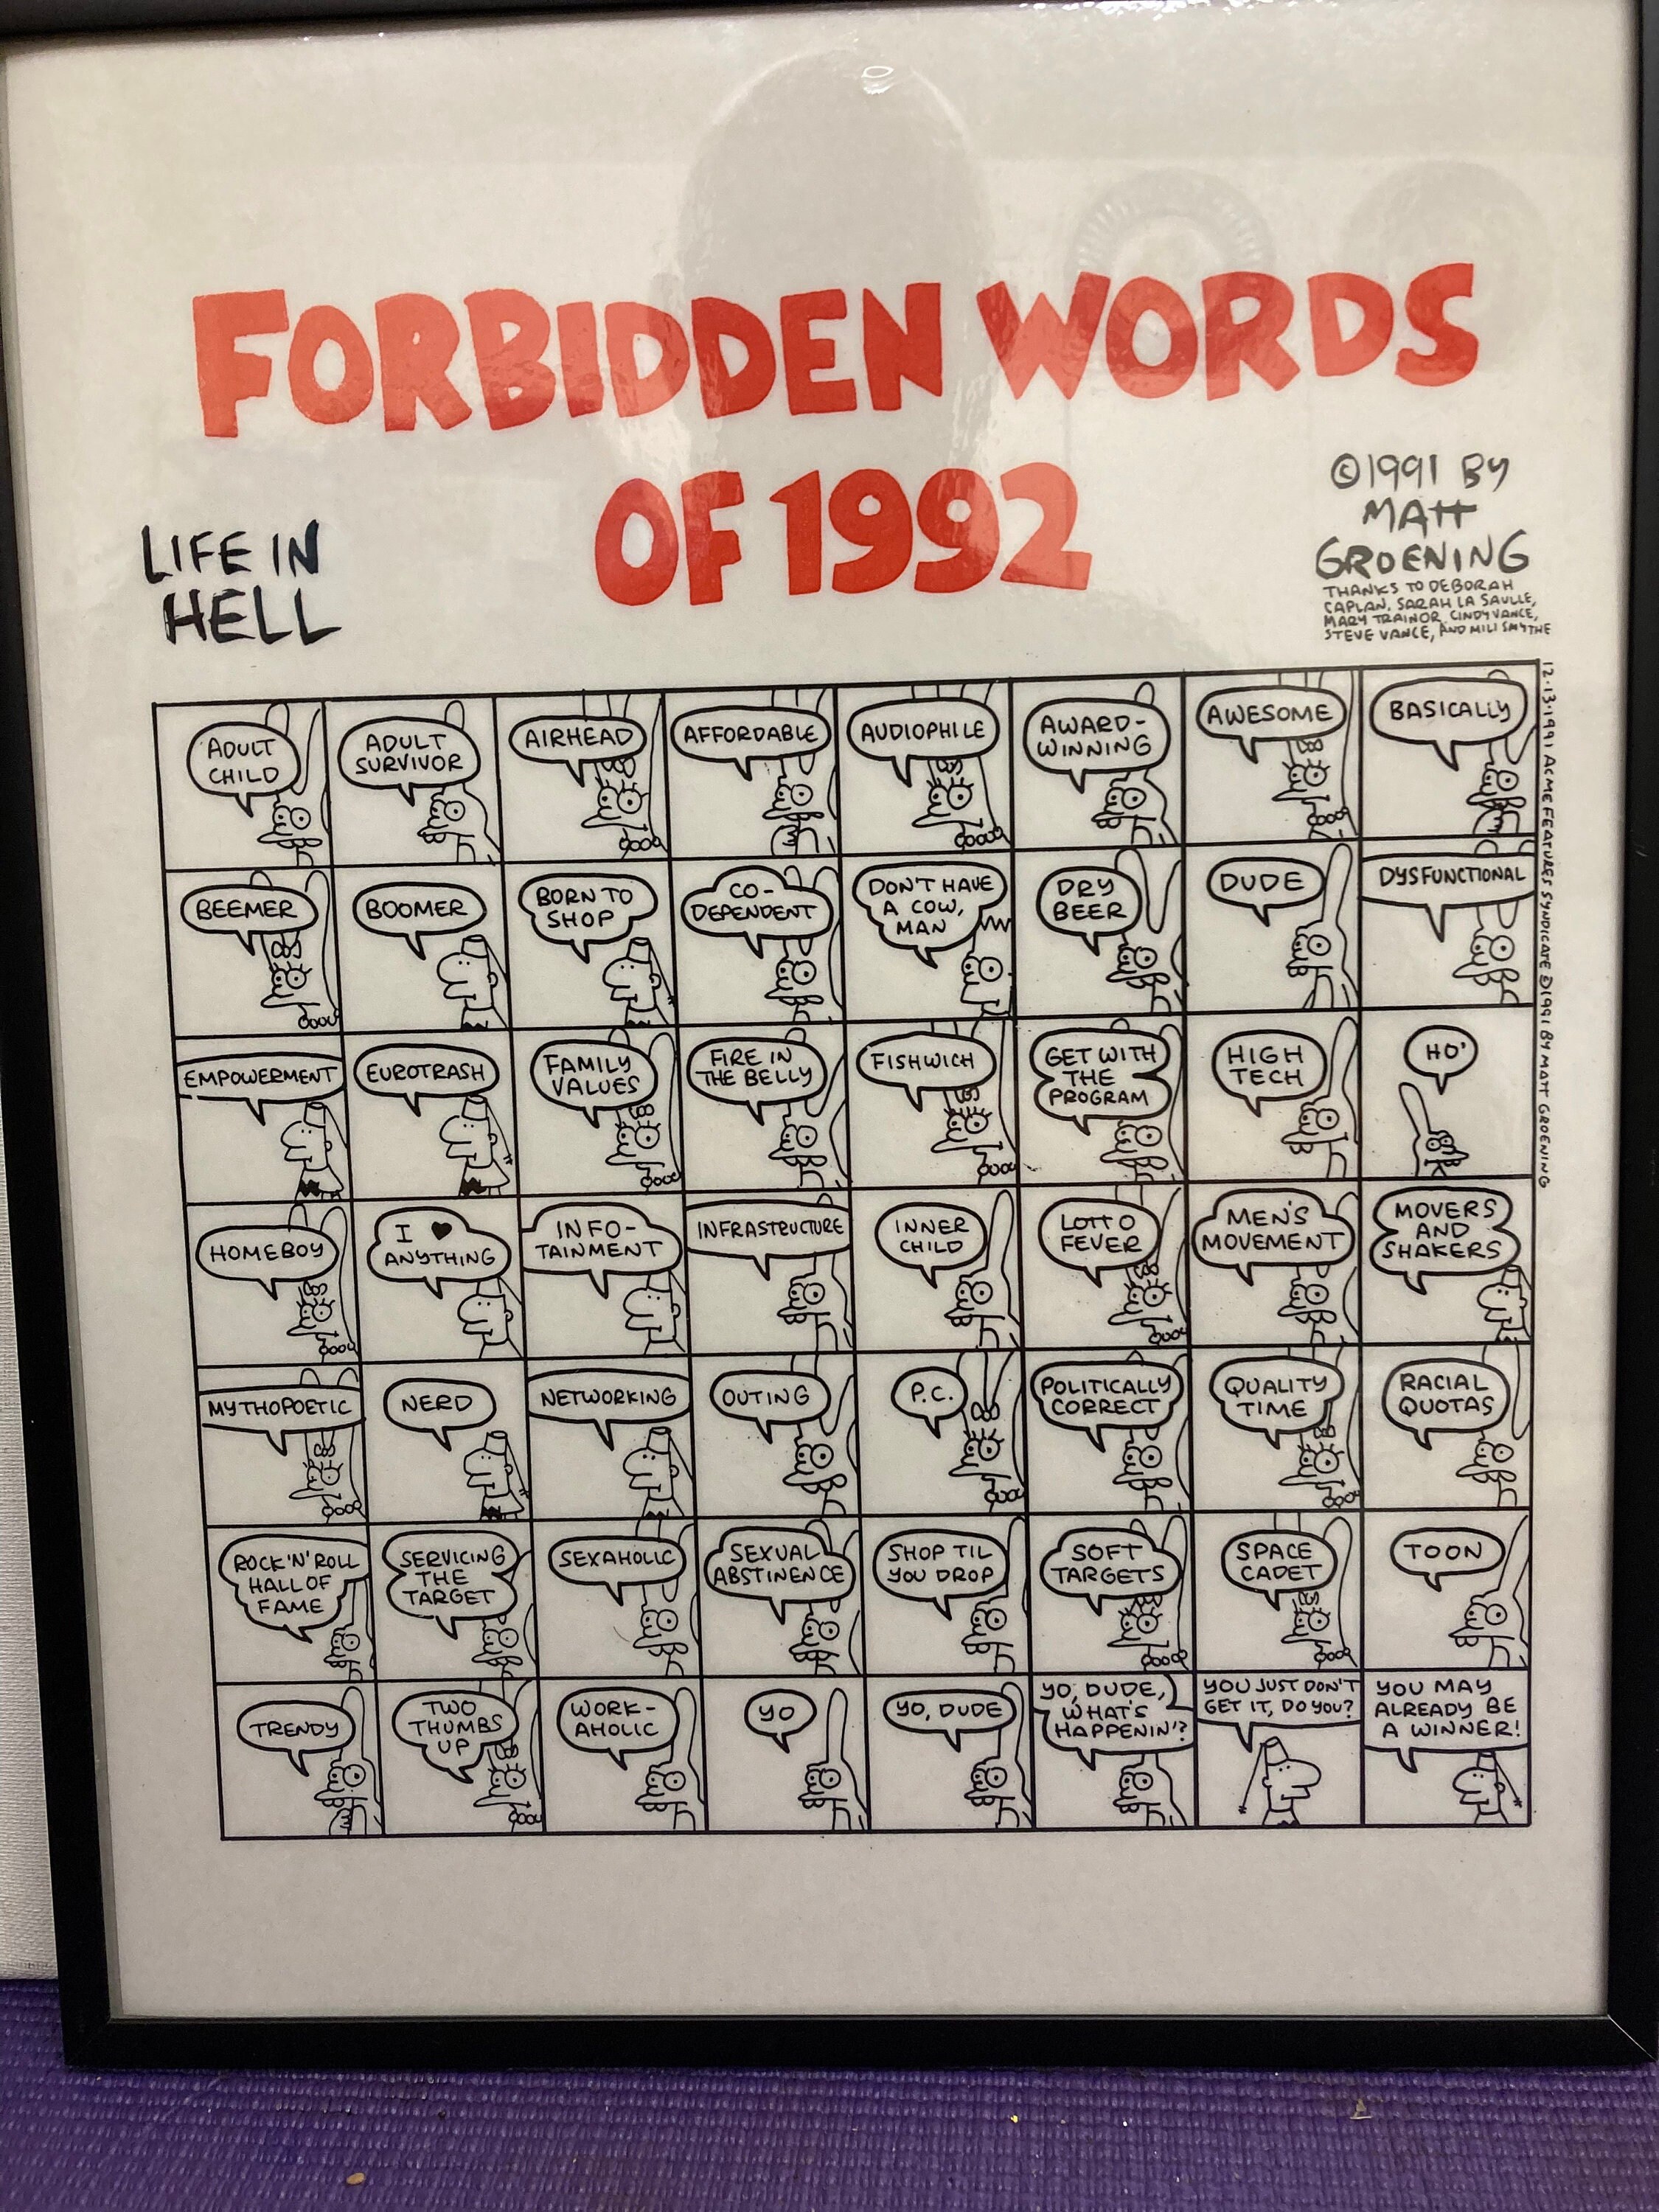 FORBIDDEN WORDS
OF 1992
LIFE IN
HELL
©1991 BY
MATT
GROENING
THANKS TO DEBORAH
CAPLAN, SARAH LA SAULLE,
MARY TRAINOR, CINDY VANCE,
STEVE VANCE, AND MILI SMYTHE
ADULT
CHILD
ADULT
SURVIVOR
AIRHEAD
AFFORDABLE
AUDIOPHILE
AWARD-
WINNING
AWESOME
BASICALLY
BEEMER
BOOMER
BORN TO
SHOP
CO-
DEPENDENT
DON'T HAVE
A COW,
MAN
DRY
BEER
DUDE
DYSFUNCTIONAL
EMPOWERMENT
EUROTRASH
FAMILY
VALUES
FIRE IN
THE BELLY
FISHWICH
GET WITH
THE
PROGRAM
HIGH
TECH
HO'
HOMEBOY
I ♥
ANYTHING
INFO-
TAINMENT
INFRASTRUCTURE
INNER
CHILD
LOTTO
FEVER
MEN'S
MOVEMENT
MOVERS
AND
SHAKERS
MYTHOPOETIC
NERD
NETWORKING
OUTING
P.C.
POLITICALLY
CORRECT
QUALITY
TIME
RACIAL
QUOTAS
ROCK 'N' ROLL
HALL OF
FAME
SERVICING
THE
TARGET
SEXAHOLIC
SEXUAL
ABSTINENCE
SHOP TIL
YOU DROP
SOFT
TARGETS
SPACE
CADET
TOON
TRENDY
TWO
THUMBS
UP
WORK-
AHOLIC
YO
YO, DUDE
YO, DUDE,
WHAT'S
HAPPENIN'?
YOU JUST DON'T
GET IT, DO YOU?
YOU MAY
ALREADY BE
A WINNER!
12·13·1991 ACME FEATURES SYNDICATE ©1991 BY MATT GROENING